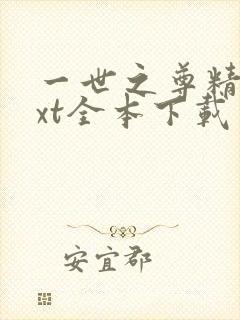 一世之尊精
xt全本下载
安宜郡